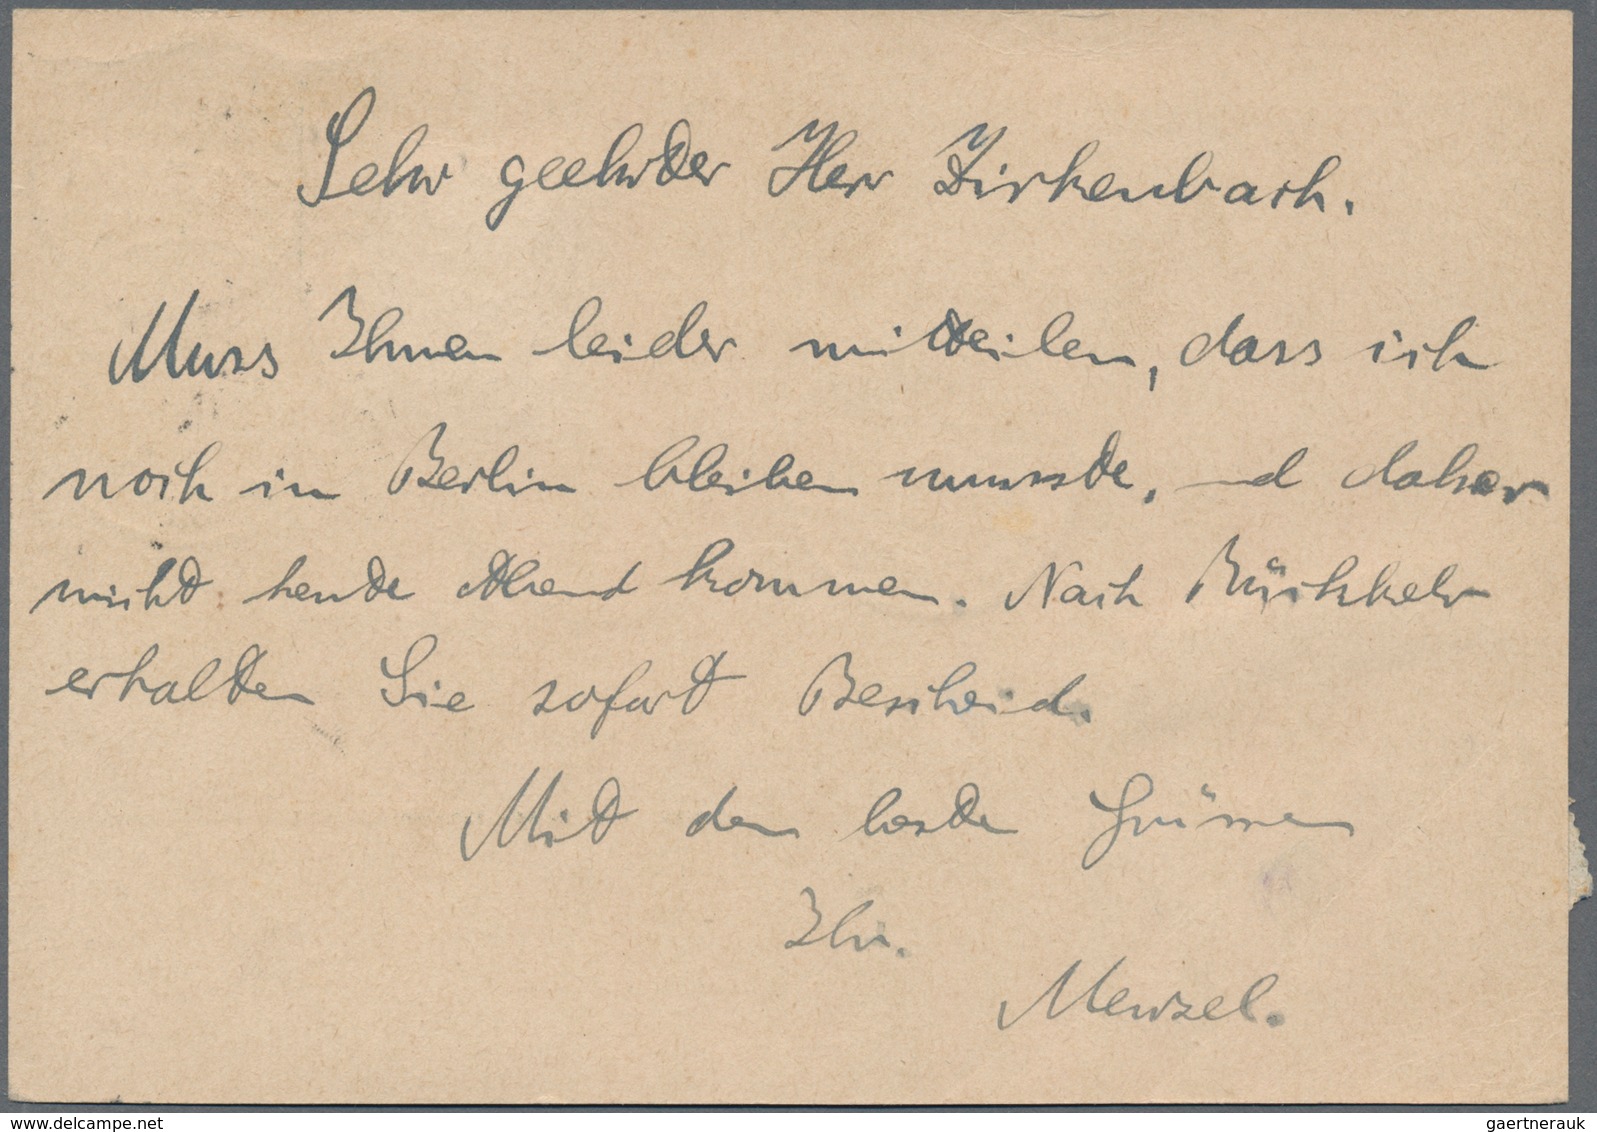 Sehr geehrter Herr Zirkenbach.
Muss Ihnen leider mitteilen, dass ich
noch in Berlin bleiben musste, und daher
nicht heute Abend kommen. Nach Rückkehr
erhalten Sie sofort Bescheid.
Mit den besten Grüssen
Ihr.
Menzel.
www.delcampe.net
gaertnerauk